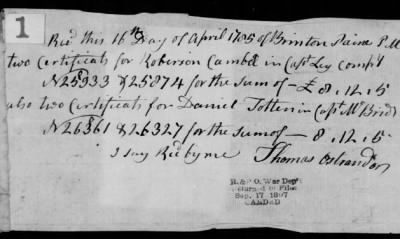 1
Recd this 16th Day of April 1785 of Brinton Paine P M
two Certificats for Roberson Cambel in Capt Ley Comp'l
No 25933 & 25874 for the sum of — £ 8 . 12 . 5
also two Certificats for Daniel Totten in Capt Mc Brid
No 26361 & 26327 for the sum of — 8 . 12 . 5
I say Recd by me Thomas Ostrander
R.& P.O. War Dep't
Returned to Files
Sep. 17 1897
CARDED